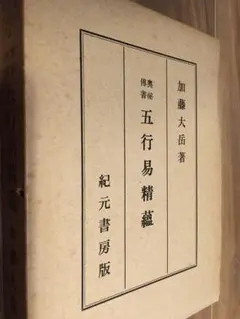 加藤大岳著
奥秘
傳書
五行易精蘊
紀元書房版